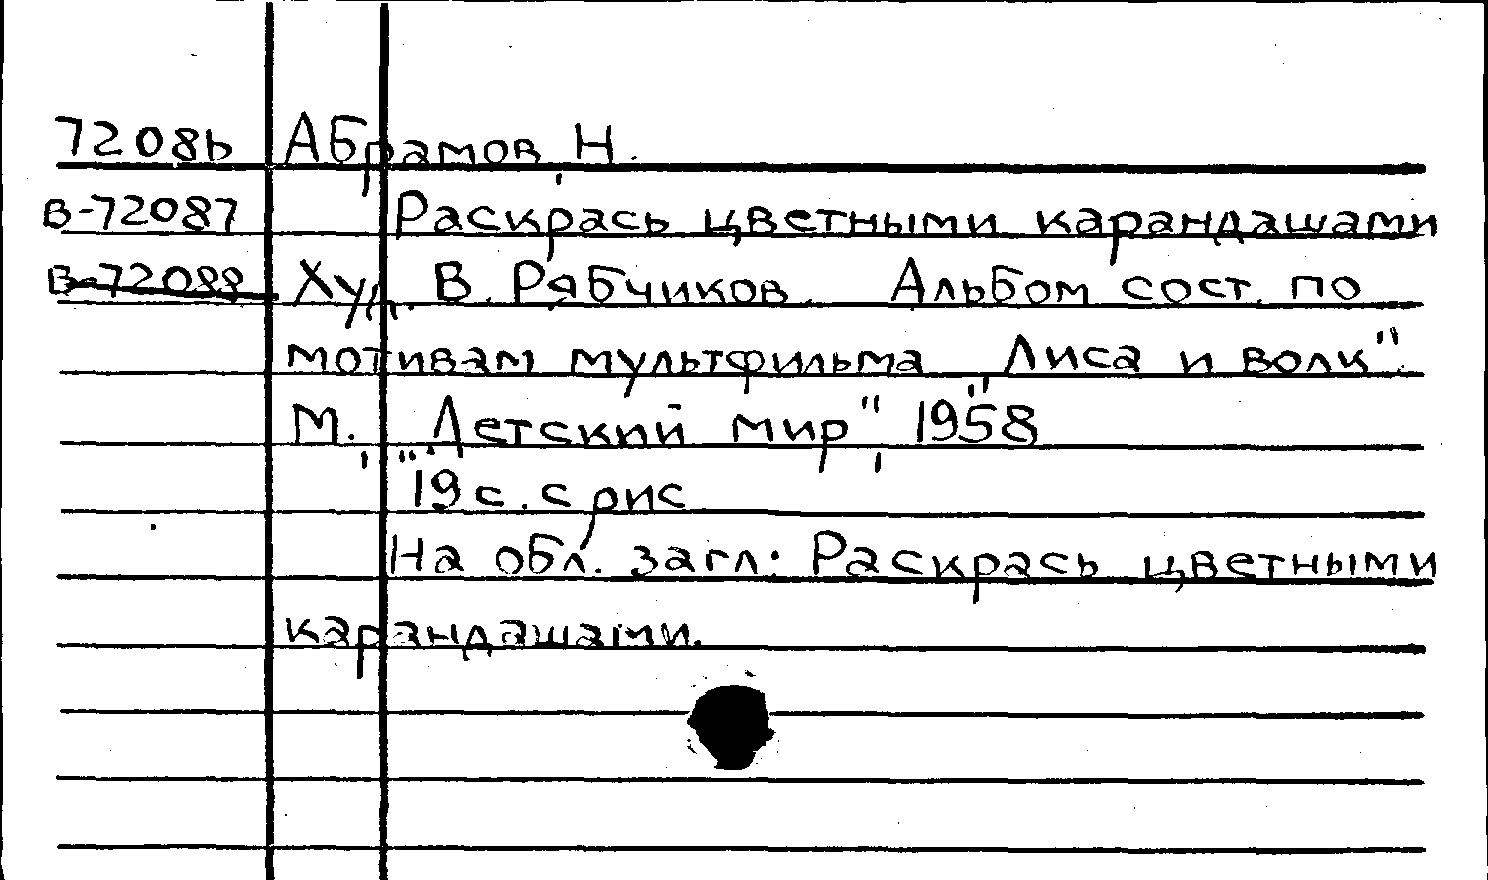 72086 Абрамов, Н.
В-72087 Раскрась цветными карандашами
В-72088 Худ. В. Рябчиков. Альбом сост. по
мотивам мультфильма „Лиса и волк".
М., „Детский мир", 1958
19 с. с рис
На обл. загл: Раскрась цветными
карандашами.